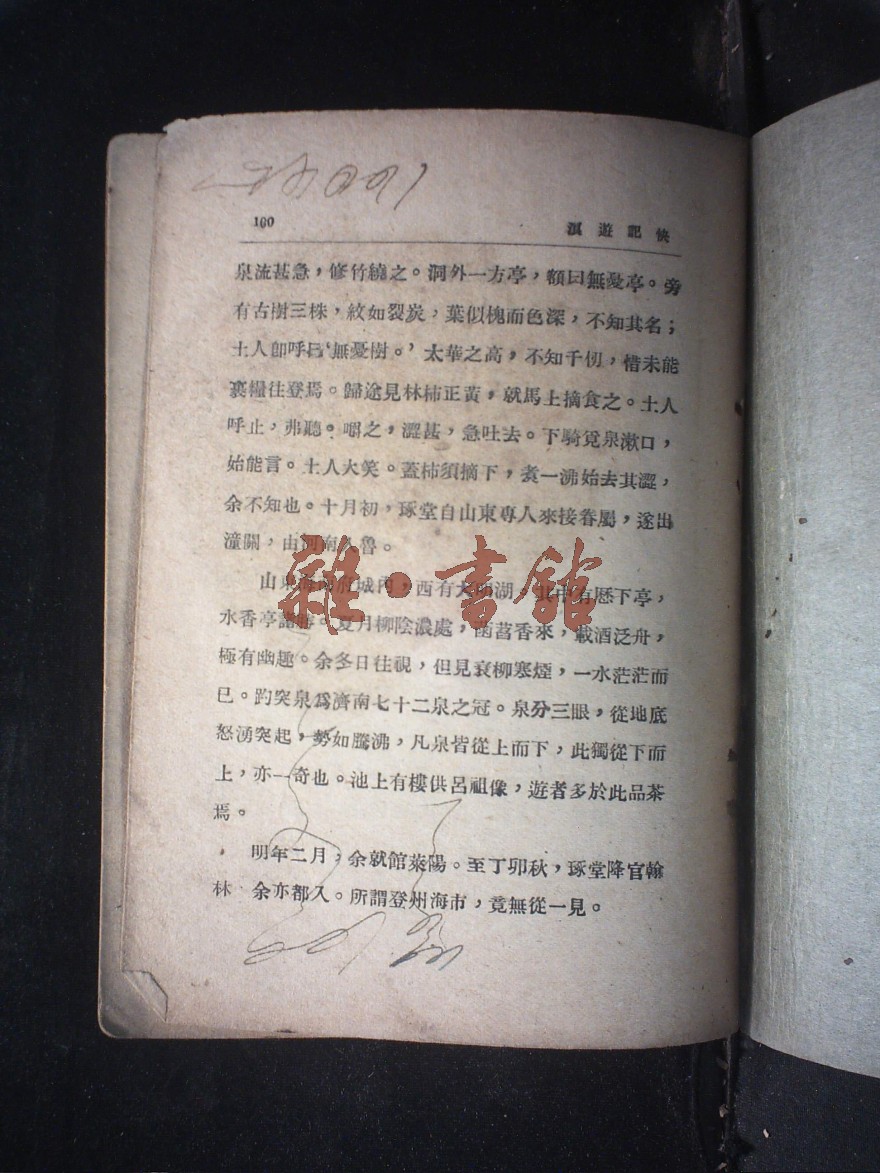 100
快記遊浪
泉流甚急，修竹繞之。洞外一方亭，額曰無憂亭。旁
有古樹三株，紋如裂炭，葉似槐而色深，不知其名；
土人卽呼曰‘無憂樹。’太華之高，不知千仞，惜未能
裹糧往登焉。歸途見林柿正黃，就馬上摘食之。土人
呼止，弗聽。嚼之，澀甚，急吐去。下騎覓泉漱口，
始能言。土人大笑。蓋柿須摘下，煮一沸始去其澀，
余不知也。十月初，琢堂自山東專人來接眷屬，遂出
潼關，由河南入魯。
山東濟南府城內，西有大明湖。其中有歷下亭，
水香亭諸勝。夏月柳陰濃處，菡萏香來，載酒泛舟，
極有幽趣。余冬日往視，但見衰柳寒煙，一水茫茫而
已。趵突泉爲濟南七十二泉之冠。泉分三眼，從地底
怒湧突起，勢如騰沸，凡泉皆從上而下，此獨從下而
上，亦一奇也。池上有樓供呂祖像，遊者多於此品茶
焉。
明年二月，余就館萊陽。至丁卯秋，琢堂降官翰
林 余亦都入。所謂登州海市，竟無從一見。
雜·書館